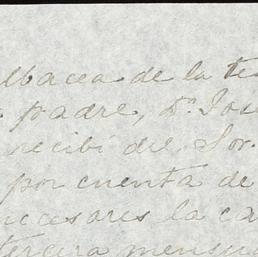 albacea de la
padre, Dn. Jos
recibí del Sor.
por cuenta de
ccesores la ca
tercera mensua